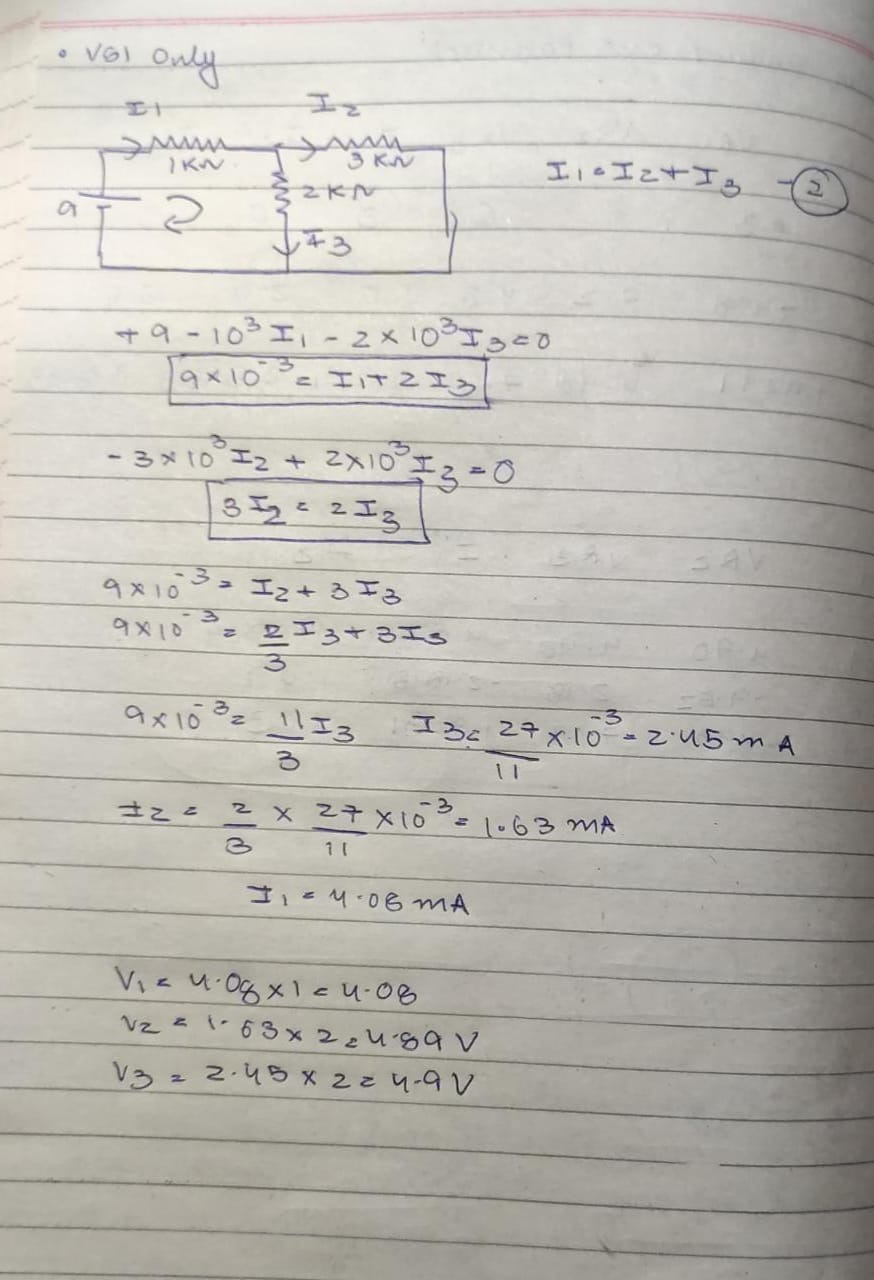 • VG1 Only
I1 I2
1KΩ 3KΩ
I1 = I2 + I3 - ②
2KΩ
9
I3
+9 - 10³ I1 - 2 × 10³ I3 = 0
9×10⁻³ = I1 + 2 I3
-3×10³ I2 + 2×10³ I3 = 0
3I2 = 2I3
9×10⁻³ = I2 + 3I3
9×10⁻³ = 2/3 I3 + 3I3
9×10⁻³ = 11/3 I3 I3 = 27/11 × 10⁻³ = 2.45 mA
I2 = 2/3 × 27/11 × 10⁻³ = 1.63 mA
I1 = 4.08 mA
V1 = 4.08 × 1 = 4.08
V2 = 1.63 × 2 = 4.89 V
V3 = 2.45 × 2 = 4.9 V